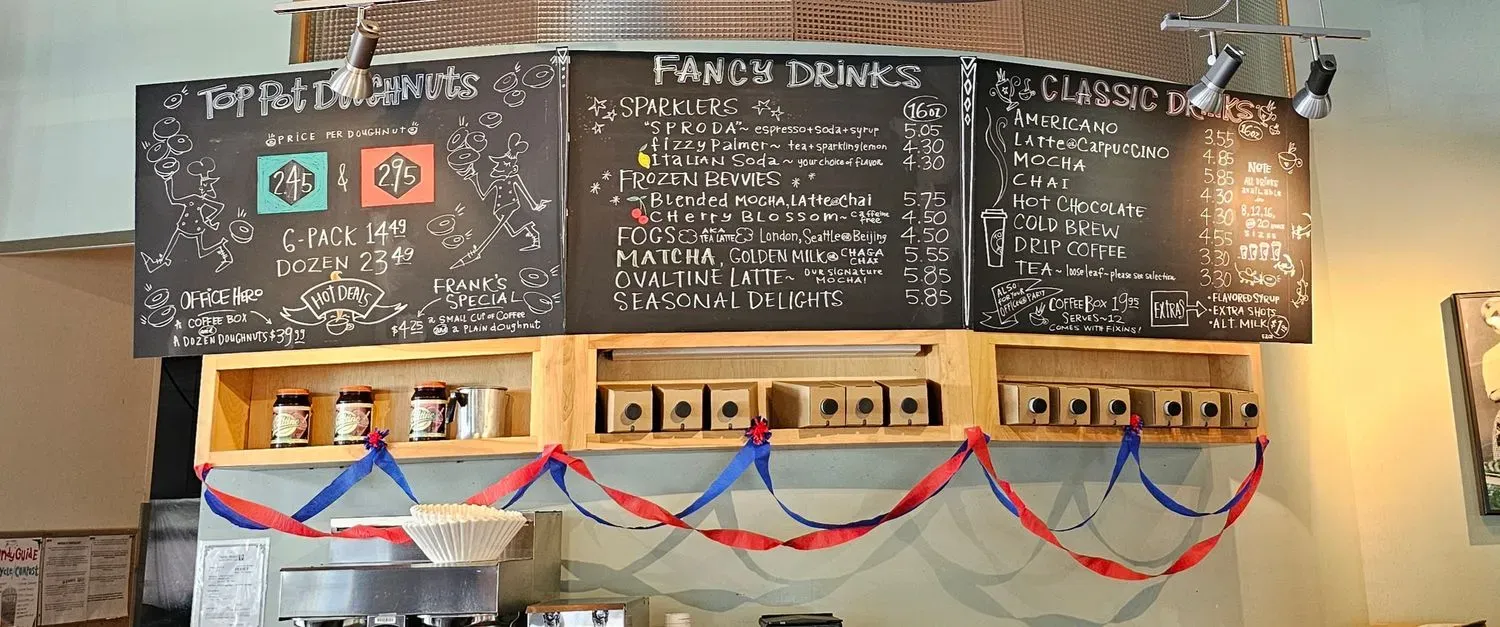 TOP POT DOUGHNUTS
PRICE PER DOUGHNUT
2.45 & 2.95
6-PACK 14.49
DOZEN 23.49
OFFICE HERO
A COFFEE BOX
and
A DOZEN DOUGHNUTS $39.99
HOT DEALS
FRANK'S
SPECIAL
a SMALL CUP of COFFEE
$4.25 and a PLAIN doughnut
FANCY DRINKS
SPARKLERS 16oz
"SPRODA"~ espresso+soda+syrup 5.05
fizzy Palmer~ tea+sparkling lemon 4.30
ITALIAN SODA~ your choice of flavor 4.30
FROZEN BEVVIES
Blended MOCHA, LATTE or Chai 5.75
CHERRY BLOSSOM~ caffeine free 4.50
FOGS AKA TEA LATTE London, Seattle or Beijing 4.50
MATCHA, GOLDEN MILK or CHAGA CHAI 5.55
OVALTINE LATTE~ OUR SIGNATURE MOCHA! 5.85
SEASONAL DELIGHTS 5.85
CLASSIC DRINKS
16oz
AMERICANO 3.55
LATTE or CAPPUCCINO 4.85
MOCHA 5.85
CHAI 4.30
HOT CHOCOLATE 4.30
COLD BREW 4.55
DRIP COFFEE 3.30
TEA~ loose leaf~please see selection 3.30
NOTE
ALL DRINKS
available
in
8, 12, 16,
or 20 ounce
sizes
ALSO
FOR YOUR
OFFICE or PARTY
COFFEE BOX 19.95
SERVES ~12
COMES WITH FIXINS!
EXTRAS
• FLAVORED SYRUP
• EXTRA SHOTS
• ALT. MILK $1.0